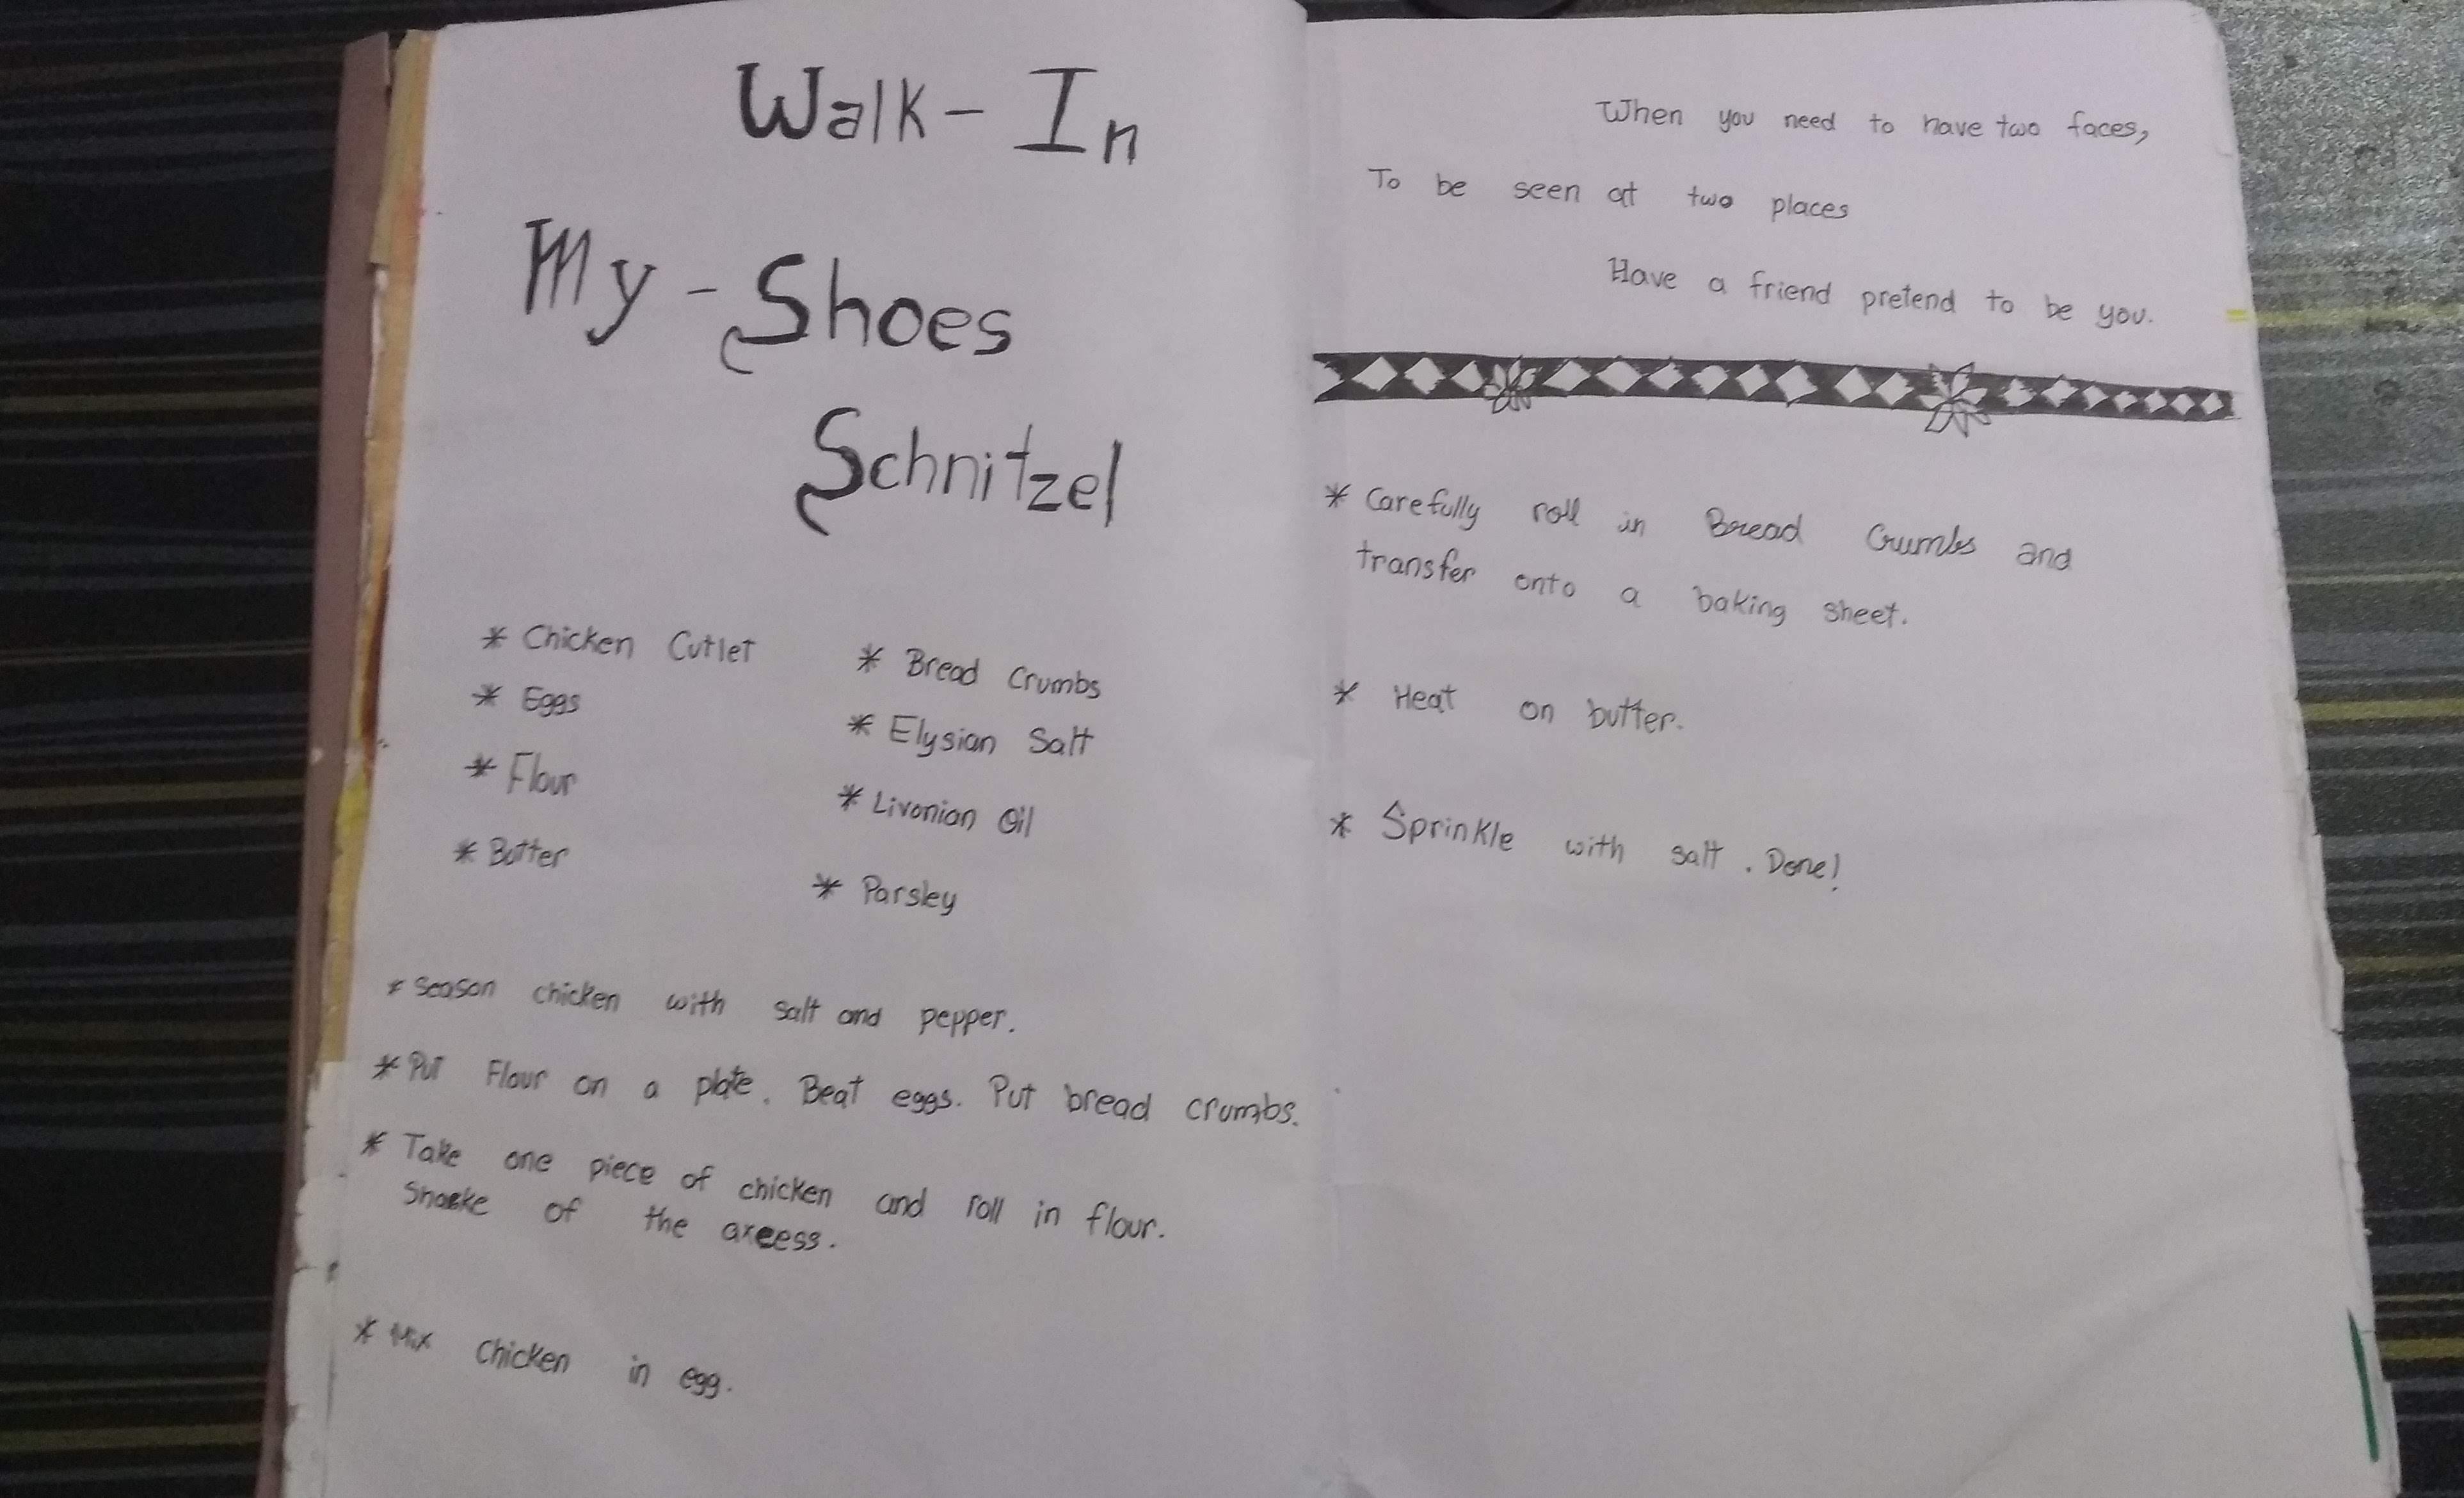 Walk-In
My-Shoes
Schnitzel
* Chicken Cutlet
* Eggs
* Flour
* Butter
* Bread Crumbs
* Elysian Salt
* Livonian Oil
* Parsley
* Season chicken with salt and pepper.
* Put Flour on a plate. Beat eggs. Put bread crumbs.
* Take one piece of chicken and roll in flour.
Shake of the axeess.
* Mix Chicken in egg.
When you need to have two faces,
To be seen at two places
Have a friend pretend to be you.
* Carefully roll in Bread Crumbs and
transfer onto a baking sheet.
* Heat on butter.
* Sprinkle with salt. Done!